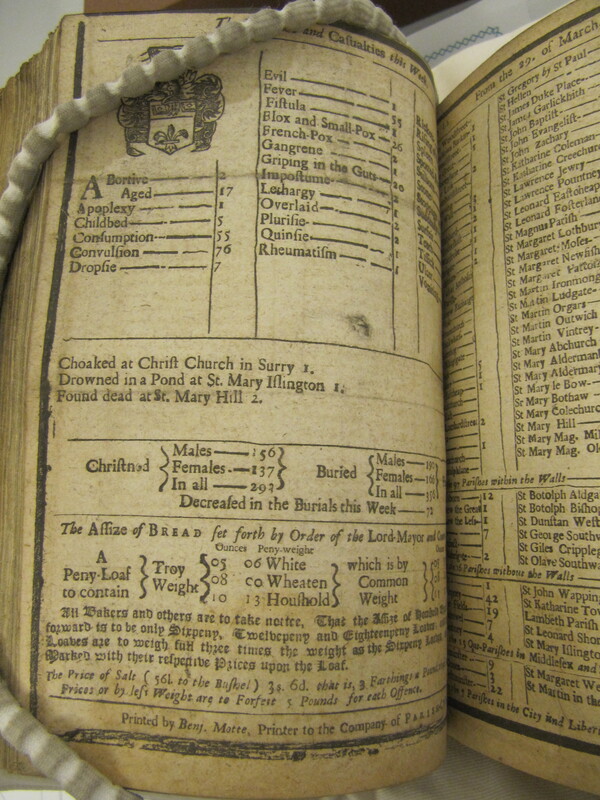 and Casualties this Week
Abortive 2
Aged 17
Apoplexy 1
Childbed 5
Consumption 55
Convulsion 76
Dropsie 7
Evil
Fever
Fistula
Flox and Small-Pox
French-Pox
Gangrene
Griping in the Guts
Impostume
Lethargy
Overlaid
Plurisie
Quinsie
Rheumatism
Choaked at Christ Church in Surry 1.
Drowned in a Pond at St. Mary Islington 1.
Found dead at St. Mary Hill 2.
Christned Males 156
Females 137
In all 293
Buried Males
Females
In all
Decreased in the Burials this Week
The Assize of BREAD set forth by Order of the Lord-Mayor and
Ounces Peny-weight
A Peny-Loaf to contain Troy Weight
05 06 White
08 00 Wheaten
10 13 Houshold
which is by Common Weight
All Bakers and others are to take notice, That the Assize of
forward is to be only Sixpeny, Twelvepeny and Eighteenpeny
Loaves are to weigh full three times the weight as the Sixpeny
Marked with their respective Prices upon the Loaf.
The Price of Salt (56l. to the Bushel) 3s. 6d. that is, 3 Farthings a
Prices or by less Weight are to Forfeit 5 Pounds for each Offence.
Printed by Benj. Motte, Printer to the Company of
From the 29. of March
St Gregory by St Paul
St Hellen
St James Duke Place
St James Garlickhith
St John Baptist
St John Evangelist
St John Zachary
St Katharine Coleman
St Katharine Creechurch
St Lawrence Jewry
St Lawrence Pountney
St Leonard Eastcheap
St Leonard Fosterlane
St Magnus Parish
St Margaret Lothbury
St Margaret Moses
St Margaret Newfish
St Margaret Pattons
St Martin Ironmong
St Martin Ludgate
St Martin Orgars
St Martin Outwich
St Martin Vintrey
St Mary Abchurch
St Mary Aldermanb
St Mary Aldermary
St Mary le Bow
St Mary Bothaw
St Mary Colechurch
St Mary Hill
St Mary Mag. Mil
St Mary Mag. Ol
Parishes within the Walls
12 St Botolph Aldga
St Botolph Bishop
St Dunstan West
7 St George Southw
St Giles Cripplega
2 St Olave Southwa
Parishes without the Walls
1 St John Wapping
42 St Katharine Tow
19 Lambeth Parish
7 St Leonard Shor
4 St Mary Islington
Parishes in Middlesex and
9 St Margaret We
3 St Martin in the
22
Parishes in the City and Libert